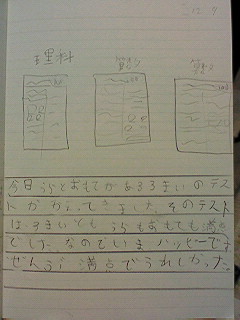 12 9
理科
算数
算数
今日うらとおもてがある3まいのテス
トがかえってきました。そのテスト
は、3まいともうらもおもても満点
でした。なのでいまハッピーです
ぜんぶ満点でうれしかった。